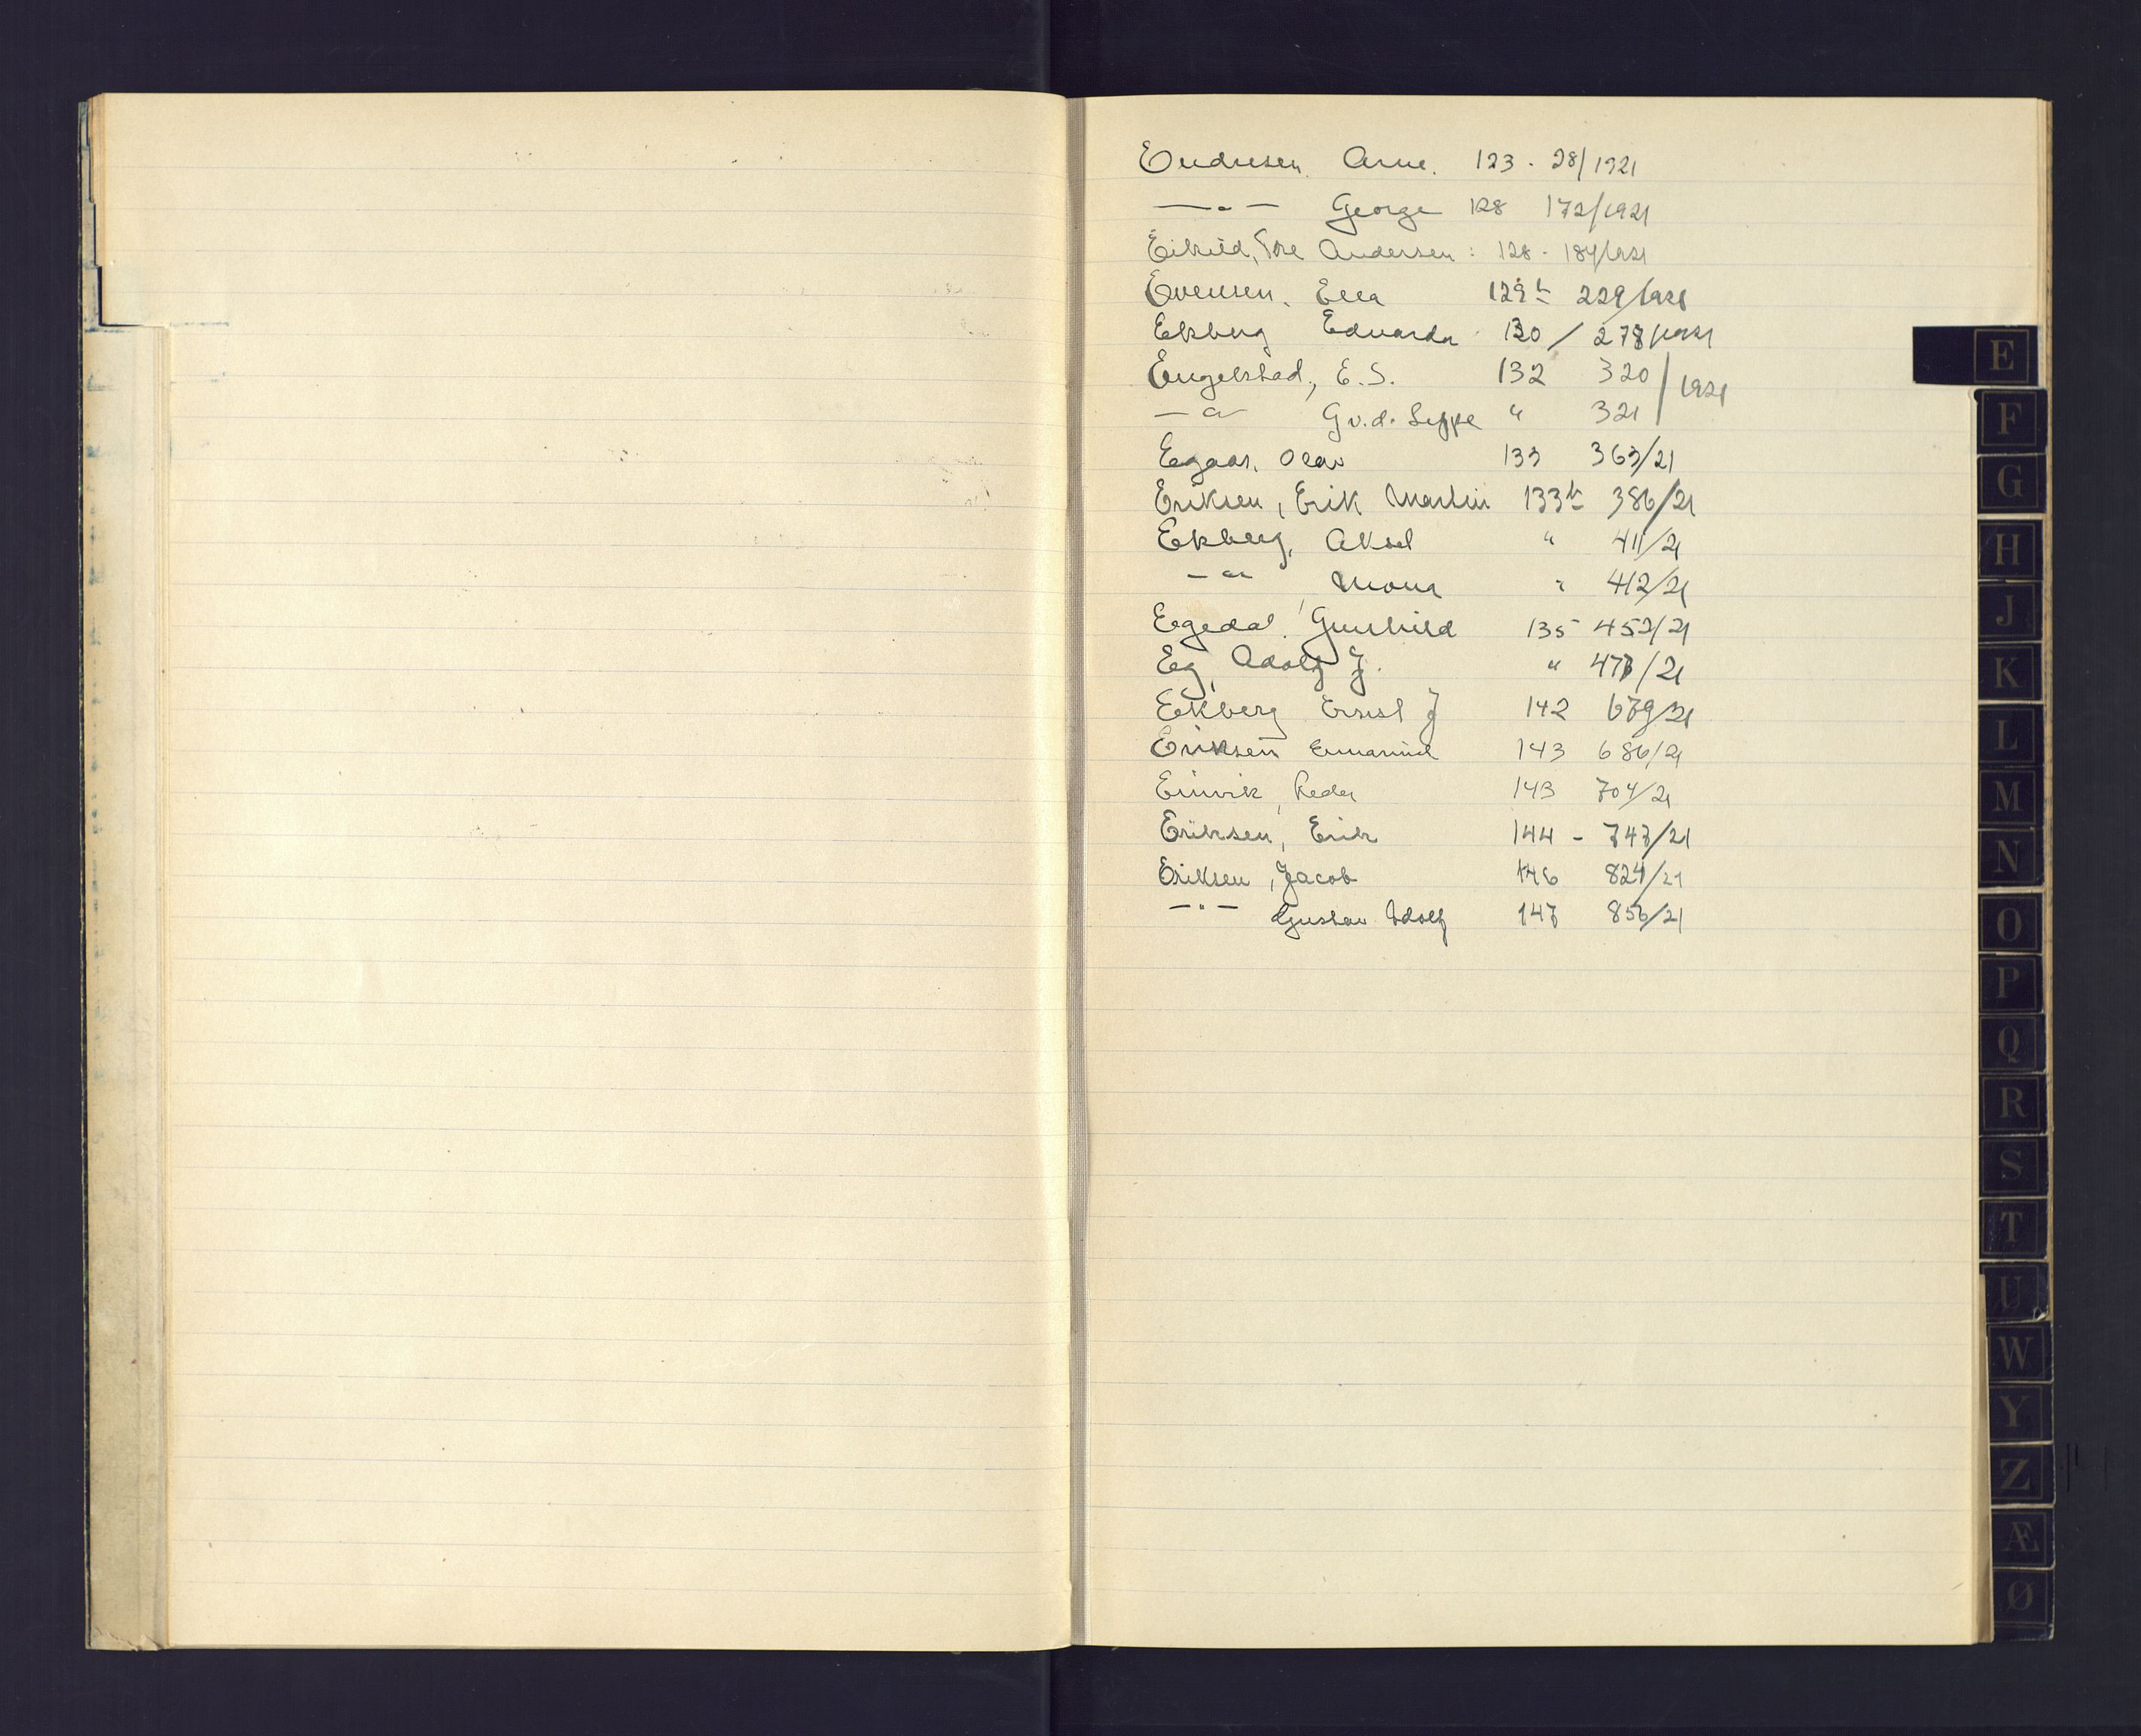 Endresen, Arne. 123 - 28/1921
—"— George 128 172/1921
Eikild, Andersen: 128 - 184/1921
Evensen, Ella 129b 229/1921
Ekberg Edvarda 130 / 278/1921
Engelstad, E.S. 132 320 / 1921
—"— G v.d. Lippe " 321
Egaas, Olav 133 363/21
Eriksen, Erik Martin 133b 386/21
Ekberg, Aksel " 411/21
—"— Mona " 412/21
Egedal, Gunhild 135 452/21
Eeg, Adolf J. " 478/21
Ekberg Ernst J 142 679/21
Eriksen 143 686/21
Einvik, Peder 143 704/21
Eriksen, Erik 144 - 747/21
Eriksen, Jacob 146 824/21
—"— Gustav Adolf 147 856/21
E
F
G
H
J
K
L
M
N
O
P
Q
R
S
T
U
W
Y
Z
Æ
Ø